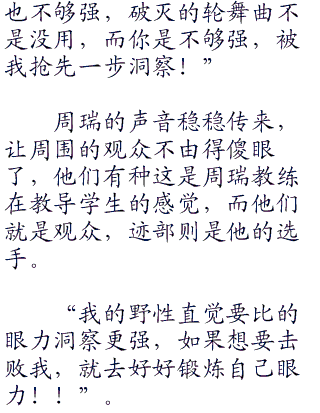 也不够强，破灭的轮舞曲不
是没用，而你是不够强，被
我抢先一步洞察！”
周瑞的声音稳稳传来，
让周围的观众不由得傻眼
了，他们有种这是周瑞教练
在教导学生的感觉，而他们
就是观众，迹部则是他的选
手。
“我的野性直觉要比的
眼力洞察更强，如果想要击
败我，就去好好锻炼自己眼
力！！”。